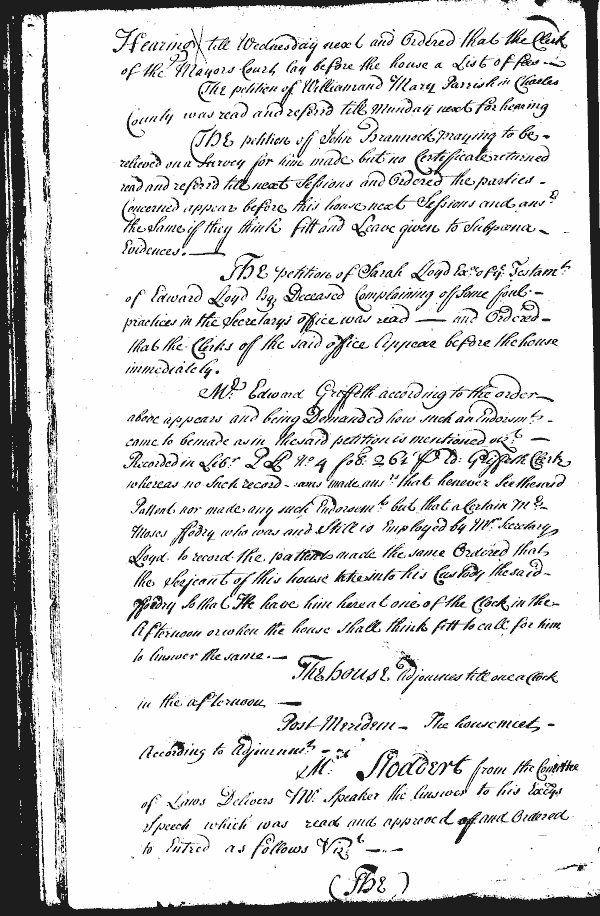 Hearing till Wednesday next and Ordered that the Clerk
of the Mayors Court lay before the house a List of fees -
The petition of William and Mary Parrish in Charles
County was read and referrd till Munday next for hearing
The petition of John Brannock praying to be -
relieved on a Survey for him made but no Certificate returned
read and referrd till next Sessions and Ordered the parties -
Concerned appear before this house next Sessions and ansr.
the Same if they think fitt and Leave given to Subpœna -
Evidences. —
The petition of Sarah Lloyd Exrx of ye Testamt.
of Edward Lloyd Esq Deceased Complaining of Some foul -
practices in the Secretarys office was read — and Ordered -
that the Clerks of the said office Appear before the house
immediately.
Mr. Edward Griffeth according to the order
above appears and being Demanded how such an Endorsmt. -
came to be made as in the said petition is mentioned vizt. —
Recorded in Libr. P L No 4 fol: 264 P E: Griffeth Clerk
whereas no Such record was made ansrs. that he never
Pattent nor made any such Endorsemt. but that a Certain Mr. -
Moses who was and Still is Employed by Mr. Secretary
Lloyd to record the pattents made the same Ordered that
the Serjeant of this house take into his Custody the said -
so that He have him here at one of the Clock in the -
Afternoon or when the house shall think fitt to call for him
to Answer the same. —
The house Adjournes till one a Clock
in the afternoon —
Post Meridem - The house meet, -
According to Adjournmt. -
Mr. Stoddert from the Comittee
of Laws Delivers Mr. Speaker the Answer to his Excys
Speech which was read and approved of and Ordered
to Entred as follows Vizt. — -
(The)